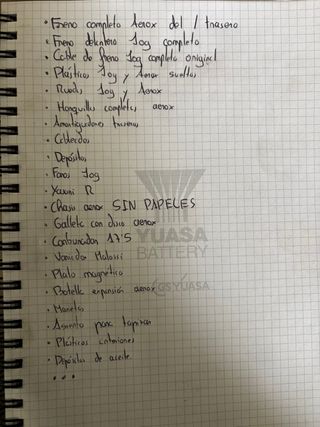 · Freno completo Aerox del / trasero
· Freno delantero Jog completo
· Cable de freno Jog completo original
· Plásticos Jog y Aerox sueltos
· Ruedas Jog y Aerox
· Horquillas completas aerox
· Amortiguadores traseros
· Cableados
· Depósitos
· Faros Jog
· Xenon R
· Chasis aerox SIN PAPELES
· Galleta con disco aerox
· Contrapuntos 17'5
· Variador Malossi
· Plato magnético
· Botella expansión aerox
· Manetas
· Asiento para tapizar
· Plásticos interiores
· Depósitos de aceite
· ...
YUASA
BATTERY
GS YUASA